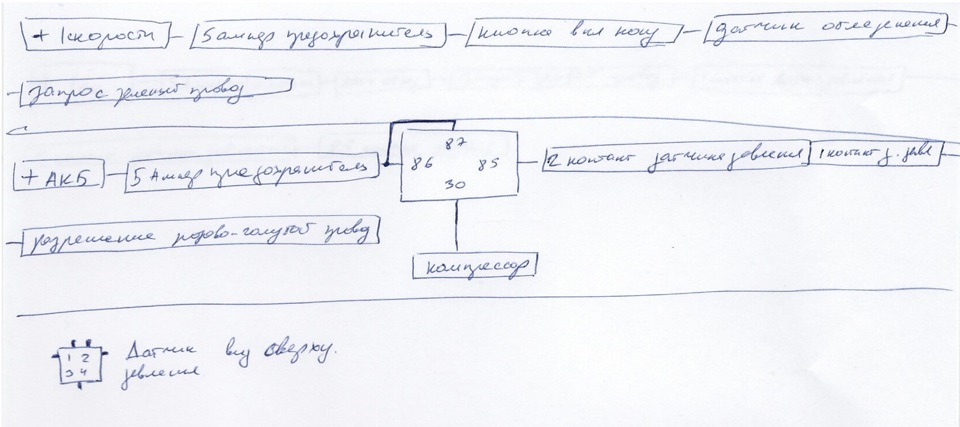 + 1 скорости 5 ампер предохранитель кнопка вкл конд датчик обледенения
запрос зеленый провод
87
+ АКБ 5 Ампер предохранитель 86 85 2 контакт датчика давления 1 контакт д. давл
30
разрешение розово-голубой провод
компрессор
1 2 Датчик вид сверху.
3 4 давления